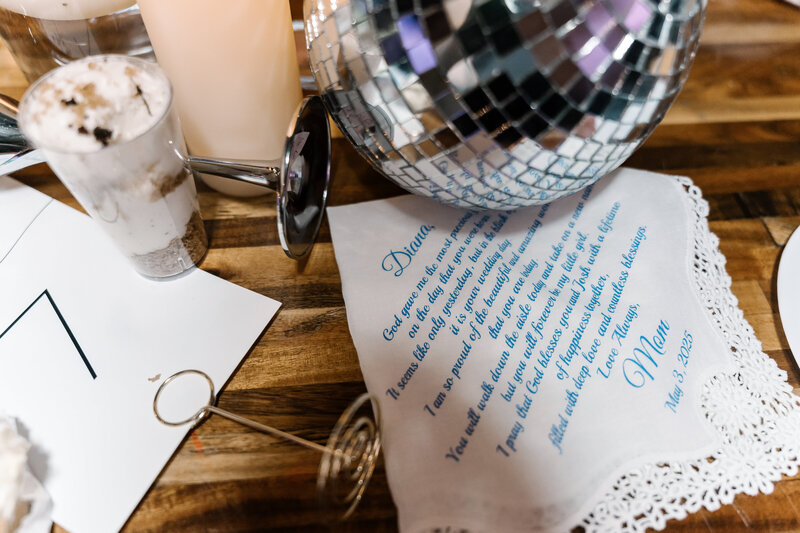 Diana,
God gave me the most precious
on the day that you were born.
It seems like only yesterday, but in the blink
it is your wedding day.
I am so proud of the beautiful and amazing woman
that you are today.
You will walk down the aisle today and take on a new
but you will forever be my little girl.
I pray that God blesses you and Josh with a lifetime
of happiness together,
filled with deep love and countless blessings.
Love Always,
Mom
May 3, 2025